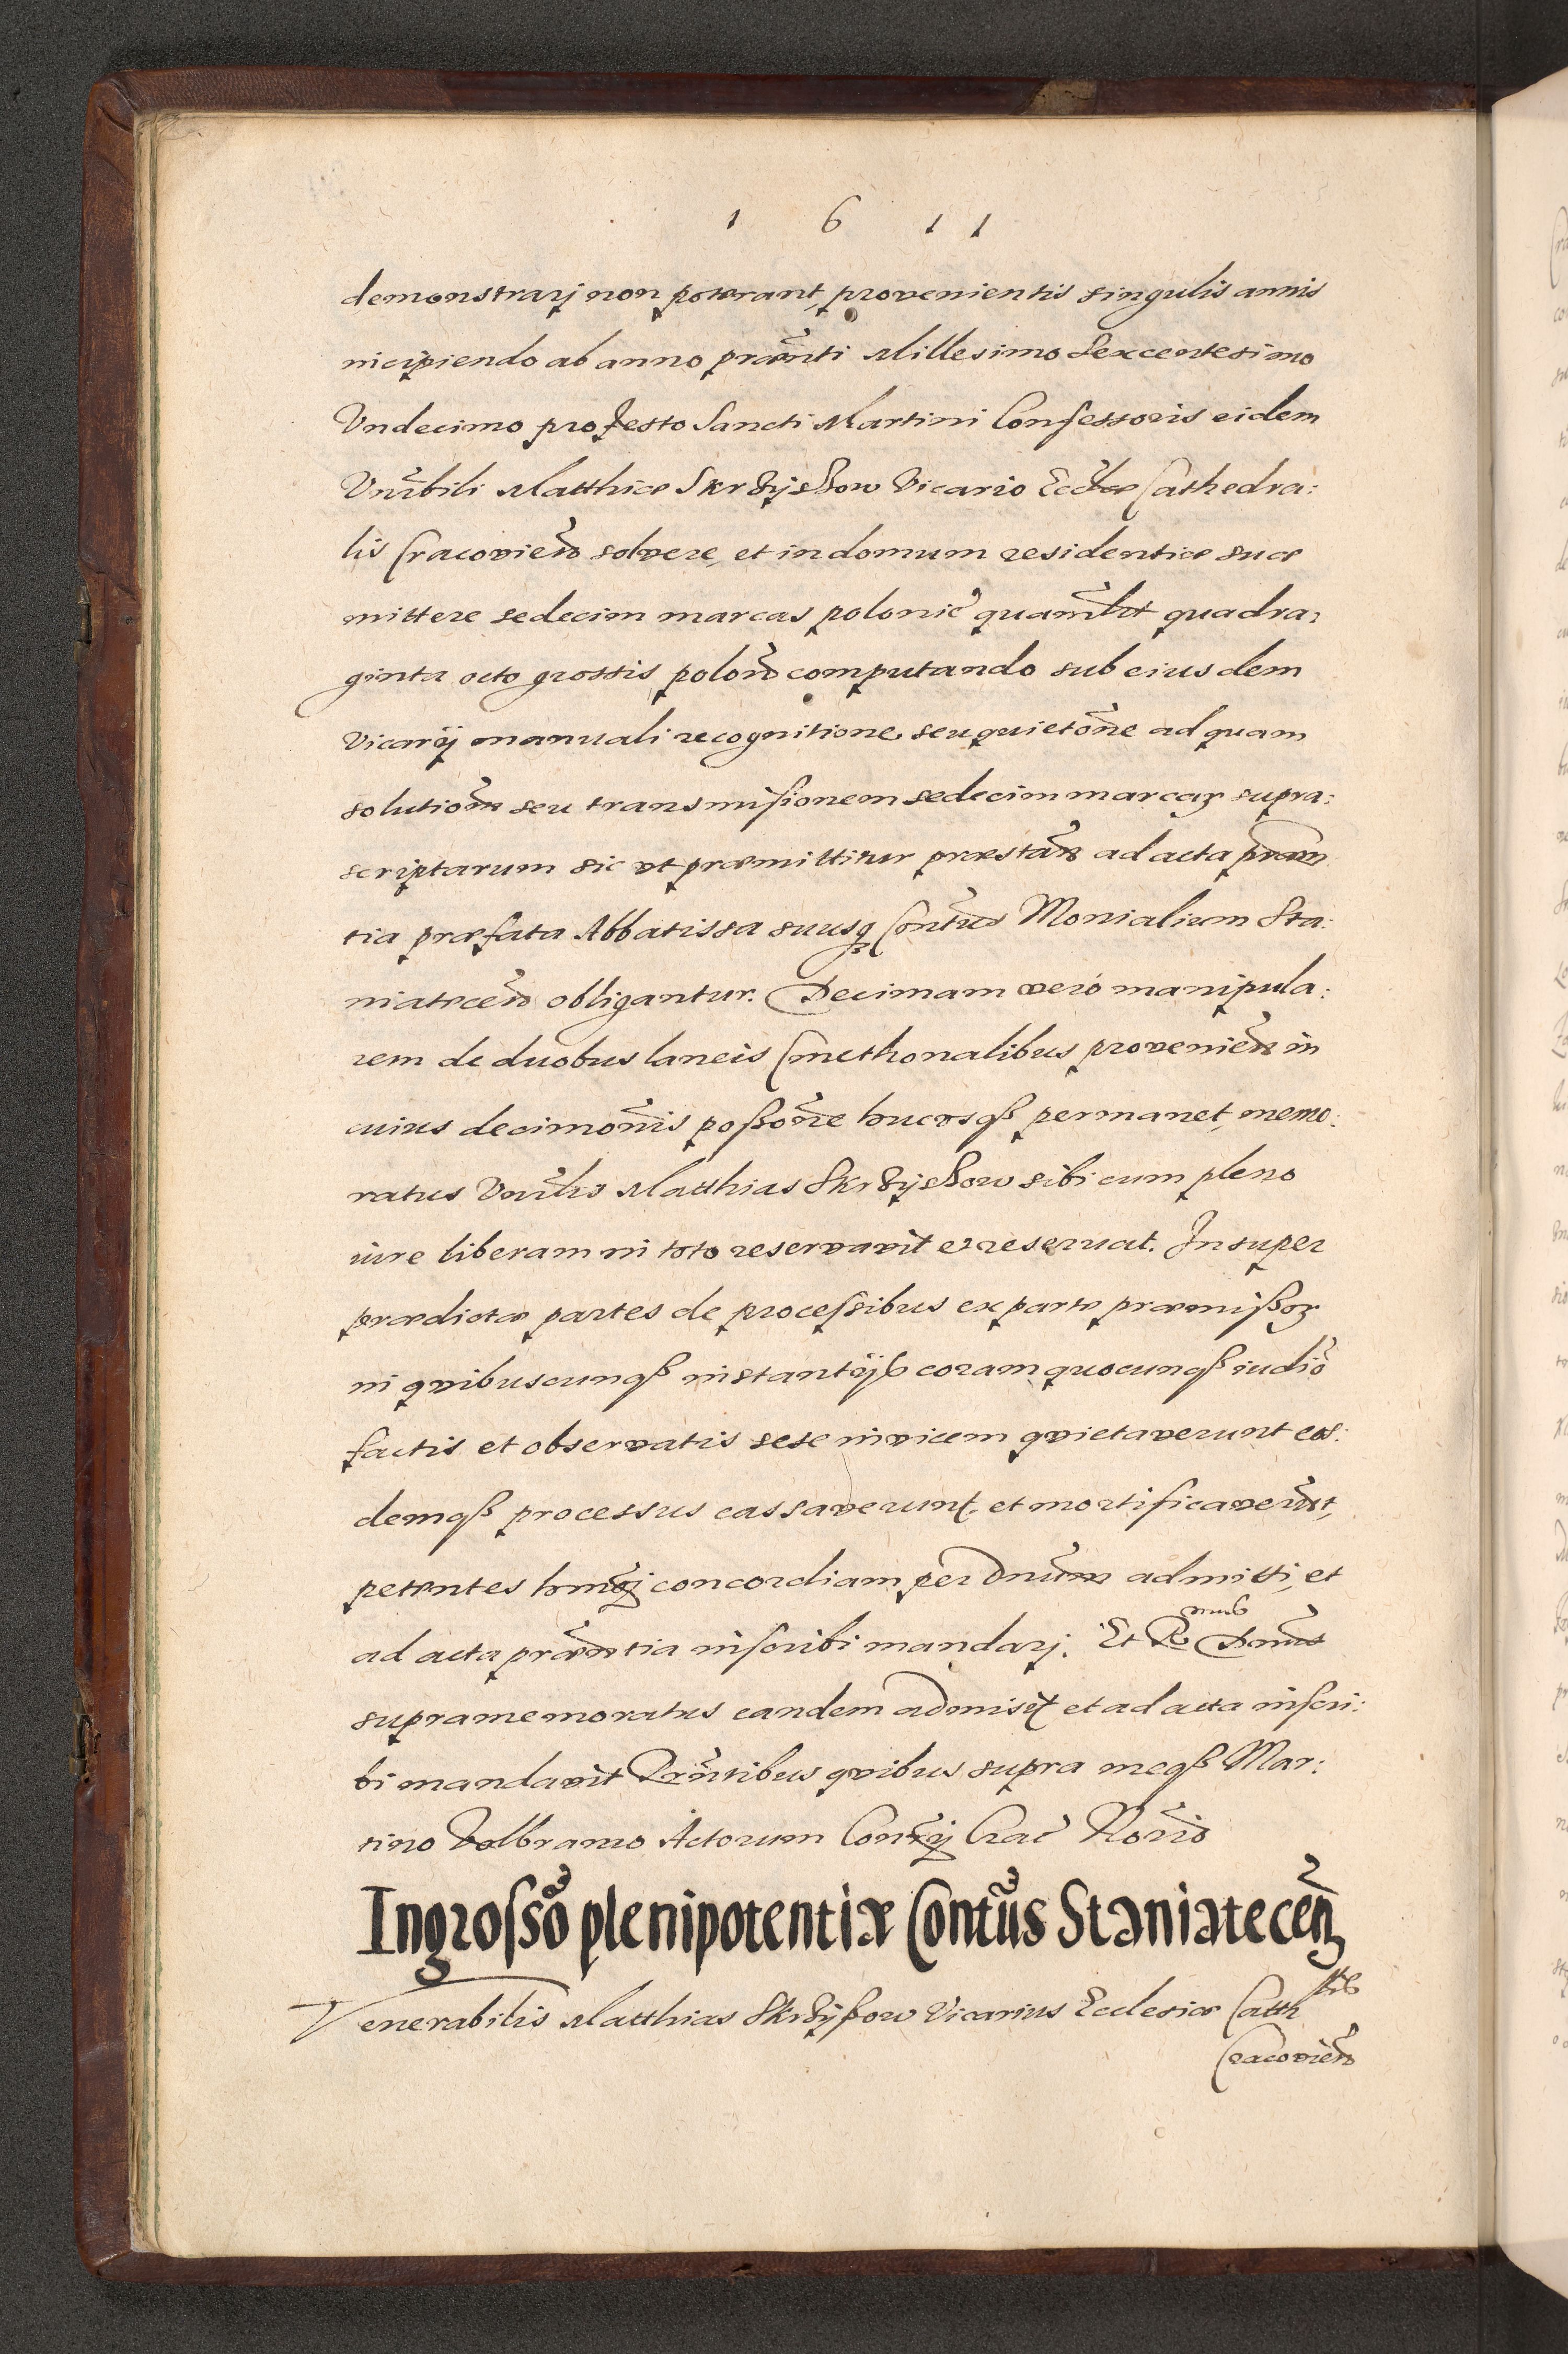 1 6 1 1
demonstrarj non poterant, provenientis singulis annis
incipiendo ab anno præn̄ti Millesimo Sexcentesimo
Vndecimo pro festo Sancti Martini Confessoris eidem
Vn̄rbili Matthiæ Skrzÿskow Vicario Eccl̄æ Cathedra:
lis Cracovień solvere, et in domum residentiæ suæ
mittere sedecim marcas polonic̄ quam̄lt quadra:
ginta octo grossis, poloń computando sub eiusdem
Vicarij manuali recognitione seu quietōne ad quam
solutiōm seu transmißionem sedecim marcarꝫ supra:
scriptarum sic vt præmittitur præstań ad acta præn̄
tia præfata Abbatissa suusqꝫ Conn̄tus Monialium Sta:
niatecēn obligantur. Decimam verò manipula:
rem de duobus laneis Cmethonalibus provenień in
cuius decimōnis poßōne hucvsqß permanet, memo:
ratus Vn̄rlis Matthias Skrzÿskow sibi cum pleno
iure liberam in toto reservavit et reseruat. Insuper
prædictæ partes de proceßibus ex parte præmißorꝫ
in qvibuscunqß instantijs coram quocunqß iudīo
factis et observatis sese invicem qvietaverunt eos:
demqß processus cassaverunt, et mortificaverūt,
petentes hmōj concordiam per Dnūm admitti, et
ad acta præn̄tia inscribi mandarj. Et R mus Dnūs
supramemoratus eandem admisit et ad acta inscri:
bi mandavit Prn̄tibus qvibus supra meqß Mar:
tino Volbramo Actorum Conrīj Crac̄ Norīo
Ingroſsō plenipotentiæ Contūs Staniatecēn
Venerabilis Matthias Skrzÿßow Vicarius Ecclesiæ Catth lis
Cracovień